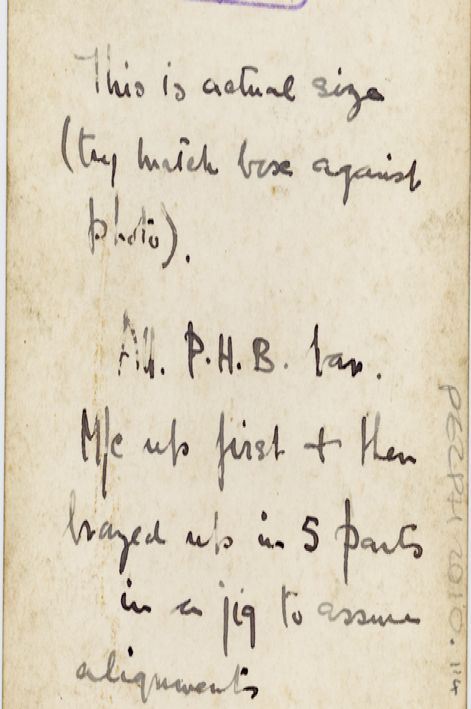 This is actual size
(try match box against
photo).
All. P.H.B. bar.
M/c up first + then
brazed up in 5 parts
in a jig to assure
alignments
PEZPH 2010.114